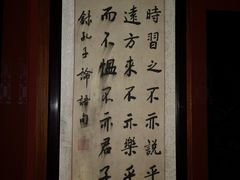 時習之不亦説乎
遠方來不亦樂乎
而不愠不亦君子
錄孔子論語句